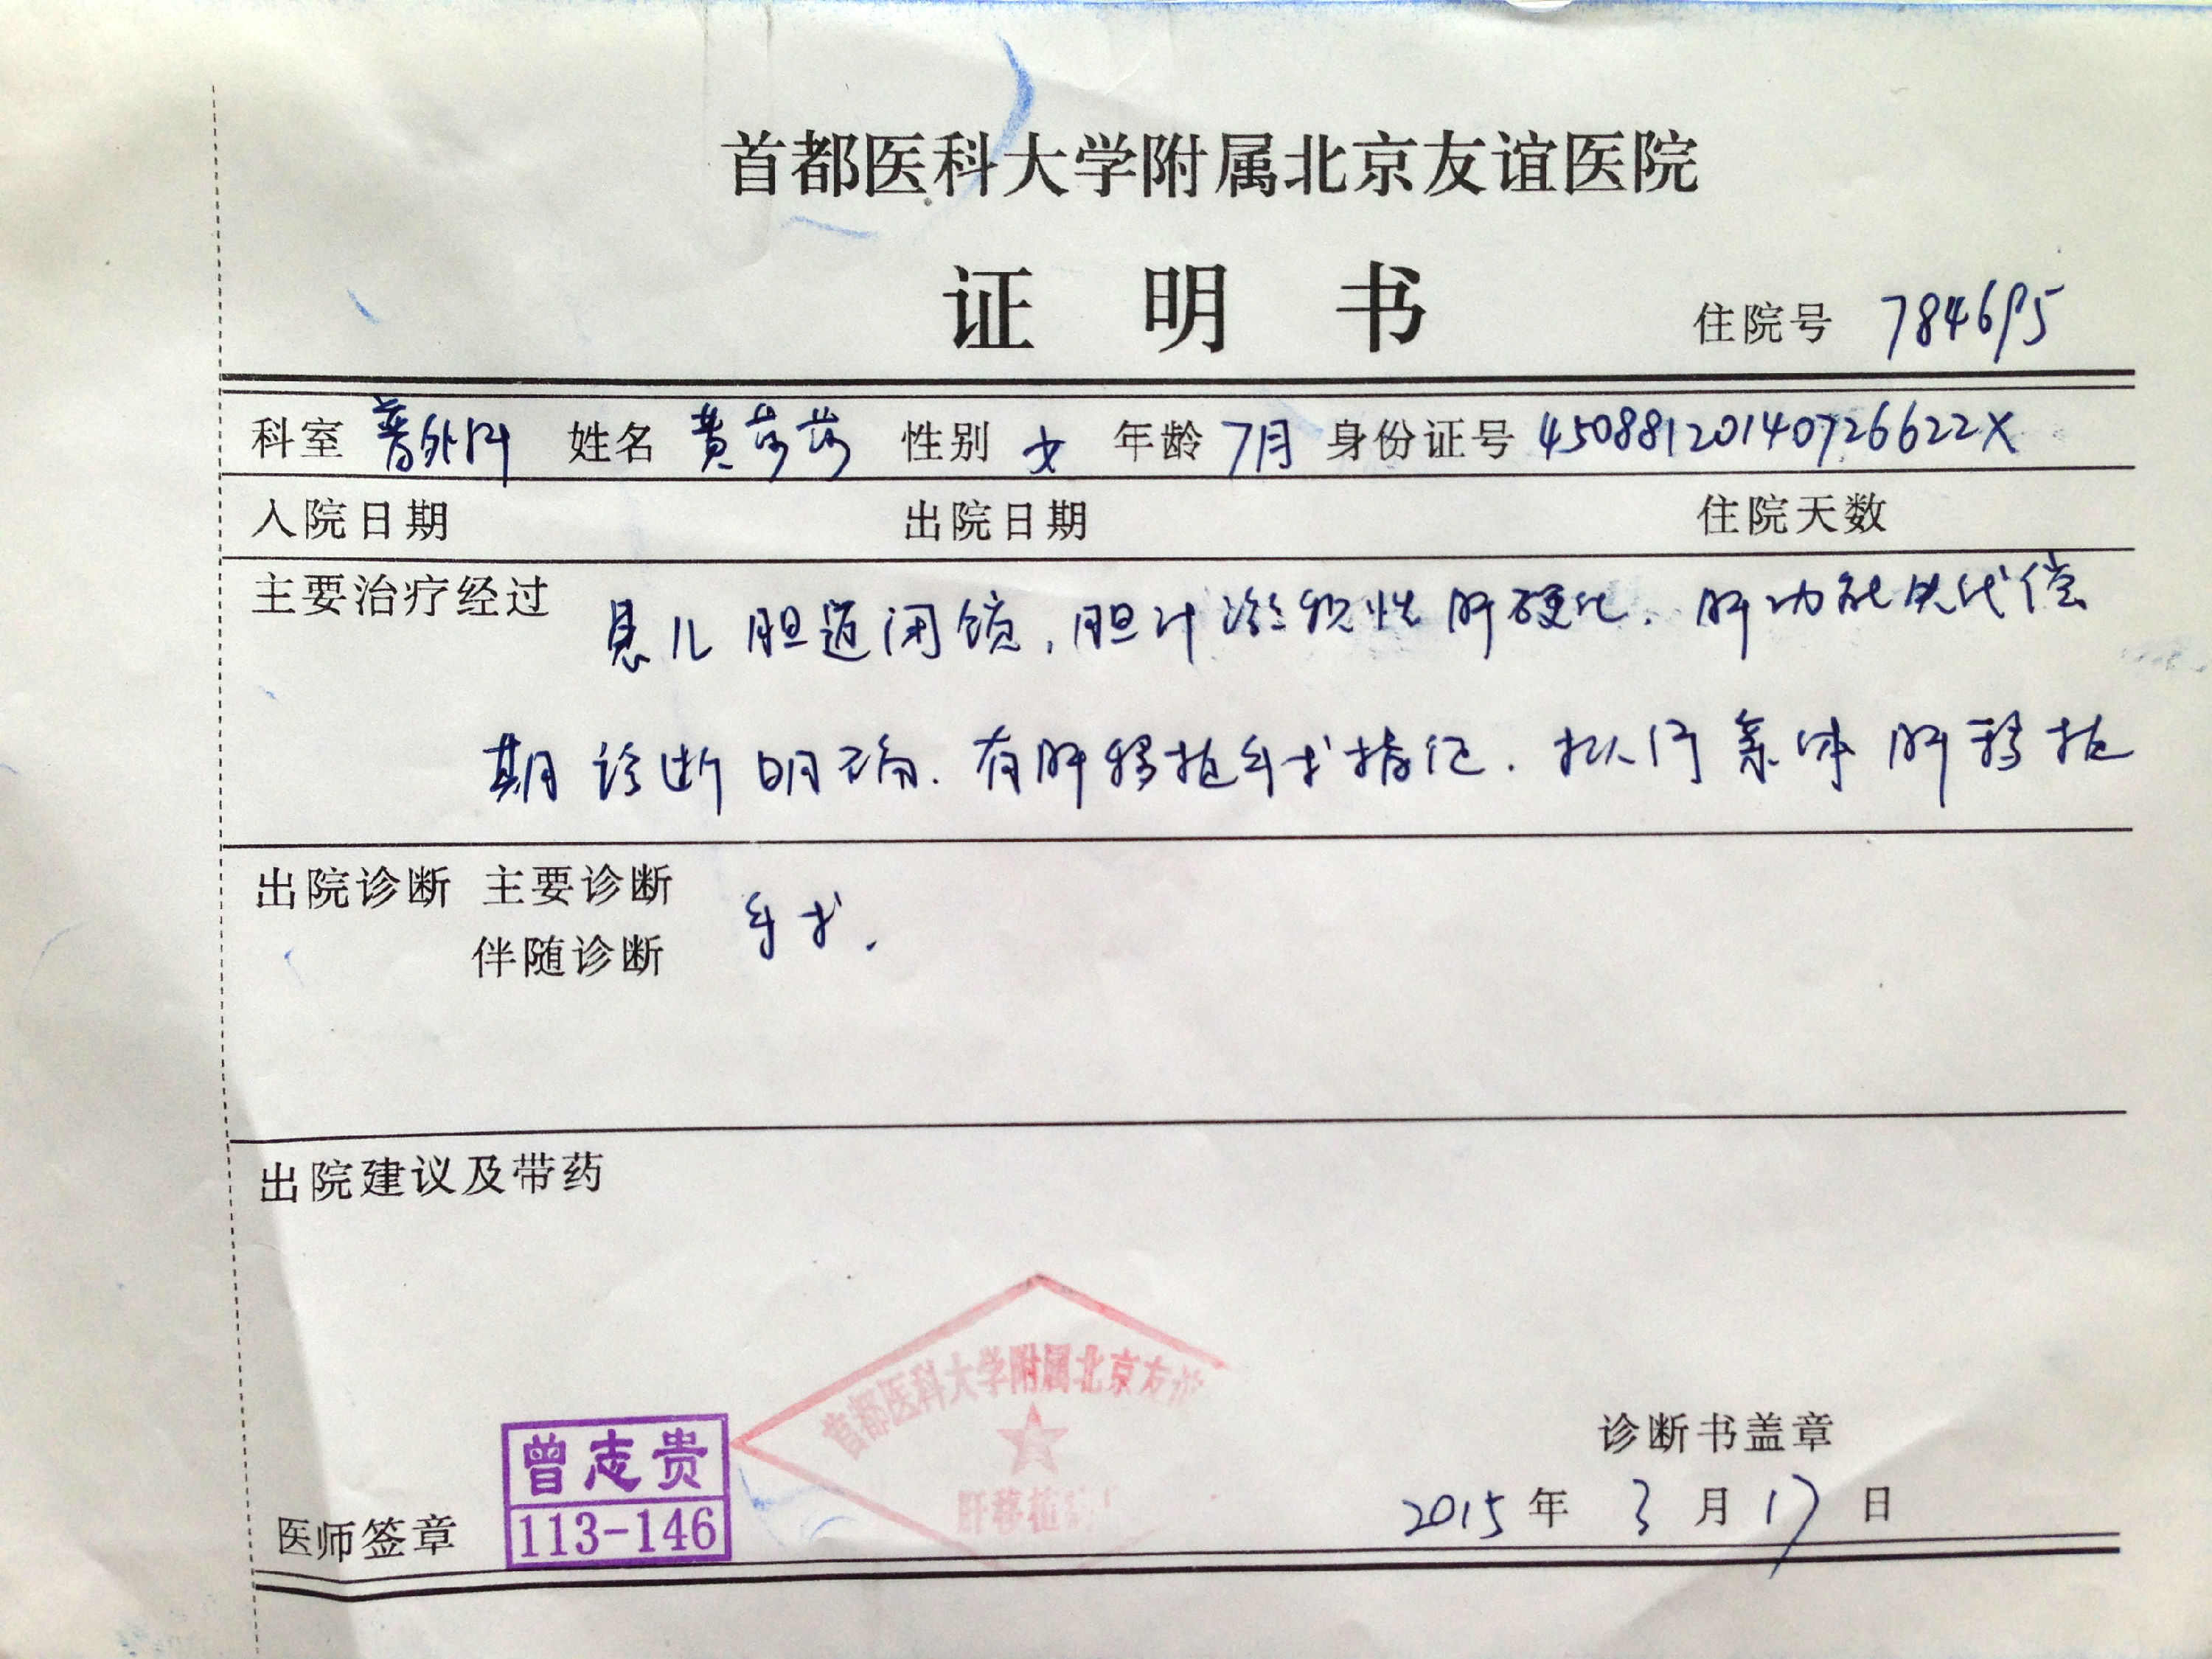 首都医科大学附属北京友谊医院
证 明 书
住院号 784695
科室 普外科 姓名 黄莎莎 性别 女 年龄 7月 身份证号 45088120140726622X
入院日期 出院日期 住院天数
主要治疗经过 患儿胆道闭锁,胆汁淤积性肝硬化.肝功能失代偿
期诊断明确.有肝移植手术指征.拟行亲体肝移植
出院诊断 主要诊断 手术.
伴随诊断
出院建议及带药
首都医科大学附属北京友谊
肝移植
诊断书盖章
曾志贵
113-146
医师签章
2015 年 3 月 17 日